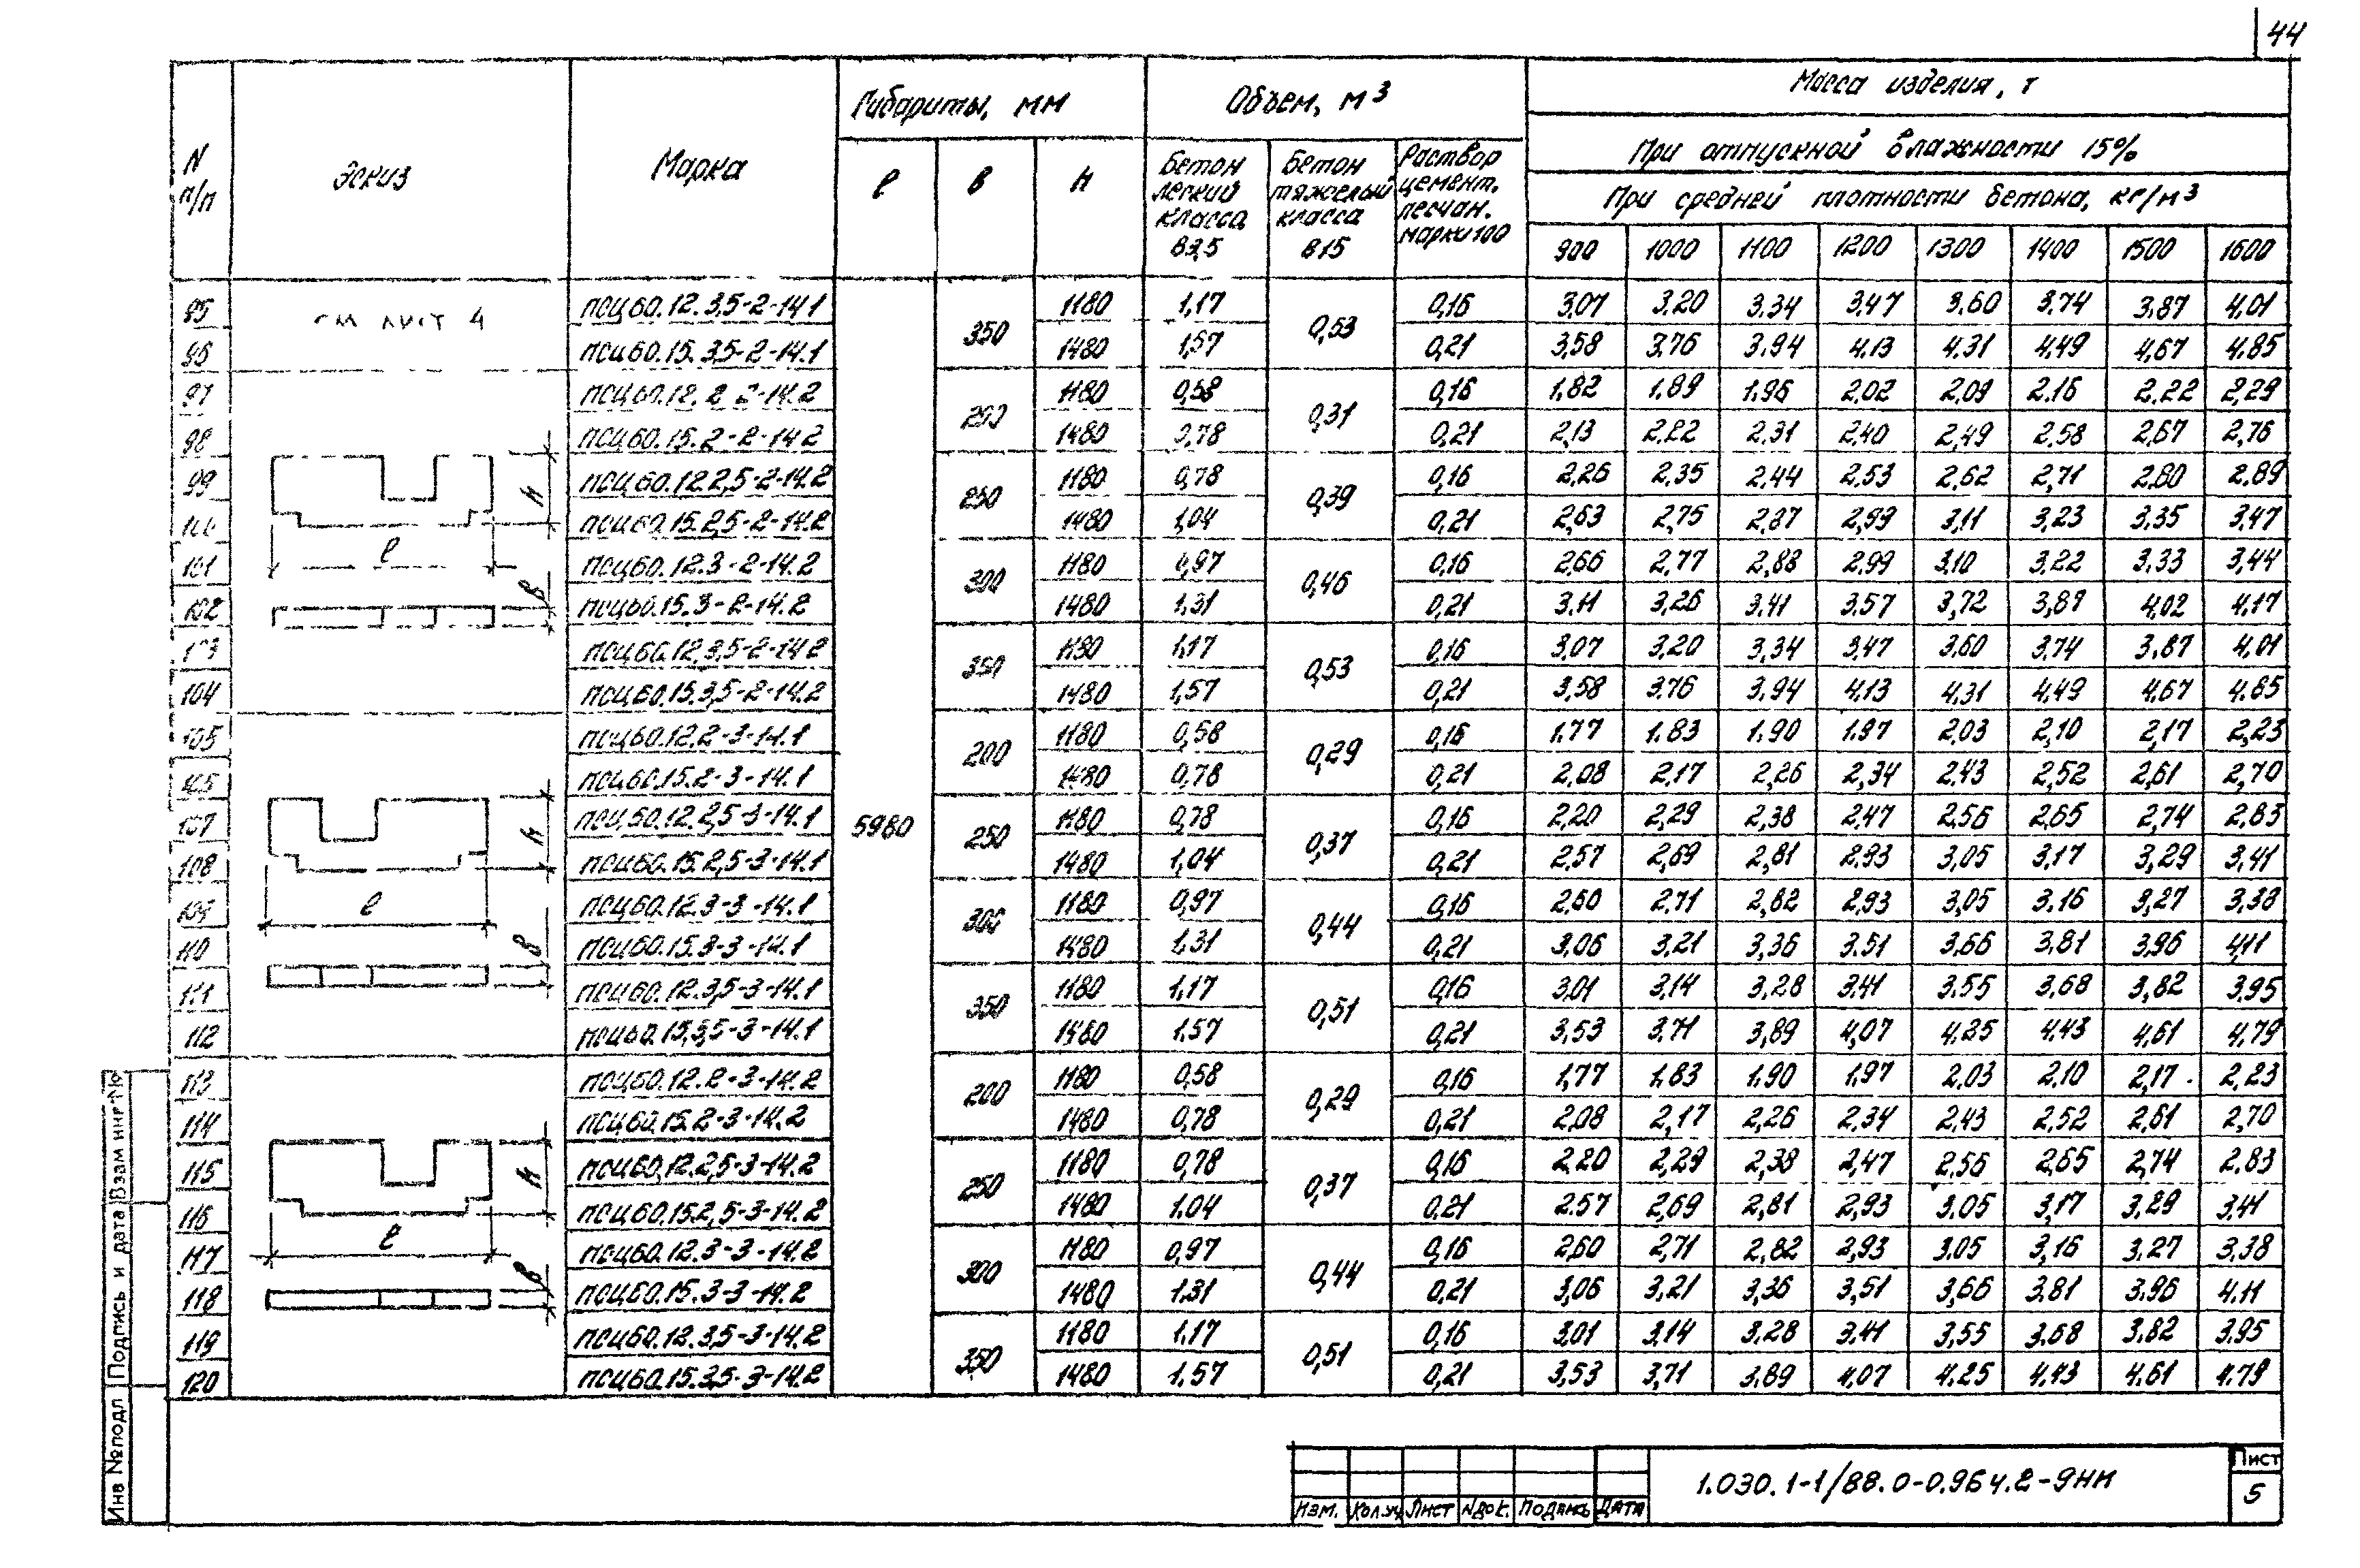 44
N п/п | Эскиз | Марка | Габариты, мм | Объем, м³ | Масса изделия, т
При отпускной влажности 15%
При средней плотности бетона, кг/м³
ℓ | в | н | Бетон легкий класса В3,5 | Бетон тяжелый класса В15 | Раствор цемент. песчан. марки 100 | 900 | 1000 | 1100 | 1200 | 1300 | 1400 | 1500 | 1600
95 | см лист 4 | ПСЦ60.12.3,5-2-14.1 | 5980 | 350 | 1180 | 1,17 | 0,53 | 0,16 | 3,07 | 3,20 | 3,34 | 3,47 | 3,60 | 3,74 | 3,87 | 4,01
96 | ПСЦ60.15.3,5-2-14.1 | 1480 | 1,57 | 0,21 | 3,58 | 3,76 | 3,94 | 4,13 | 4,31 | 4,49 | 4,67 | 4,85
97 | ПСЦ60.12.2-2-14.2 | 200 | 1180 | 0,58 | 0,31 | 0,16 | 1,82 | 1,89 | 1,96 | 2,02 | 2,09 | 2,16 | 2,22 | 2,29
98 | ПСЦ60.15.2-2-14.2 | 1480 | 0,78 | 0,21 | 2,13 | 2,22 | 2,31 | 2,40 | 2,49 | 2,58 | 2,67 | 2,76
99 | ПСЦ60.12.2,5-2-14.2 | 250 | 1180 | 0,78 | 0,39 | 0,16 | 2,26 | 2,35 | 2,44 | 2,53 | 2,62 | 2,71 | 2,80 | 2,89
100 | ПСЦ60.15.2,5-2-14.2 | 1480 | 1,04 | 0,21 | 2,63 | 2,75 | 2,87 | 2,99 | 3,11 | 3,23 | 3,35 | 3,47
101 | ПСЦ60.12.3-2-14.2 | 300 | 1180 | 0,97 | 0,46 | 0,16 | 2,66 | 2,77 | 2,88 | 2,99 | 3,10 | 3,22 | 3,33 | 3,44
102 | ПСЦ60.15.3-2-14.2 | 1480 | 1,31 | 0,21 | 3,11 | 3,26 | 3,41 | 3,57 | 3,72 | 3,87 | 4,02 | 4,17
103 | ПСЦ60.12.3,5-2-14.2 | 350 | 1180 | 1,17 | 0,53 | 0,16 | 3,07 | 3,20 | 3,34 | 3,47 | 3,60 | 3,74 | 3,87 | 4,01
104 | ПСЦ60.15.3,5-2-14.2 | 1480 | 1,57 | 0,21 | 3,58 | 3,76 | 3,94 | 4,13 | 4,31 | 4,49 | 4,67 | 4,85
105 | ПСЦ60.12.2-3-14.1 | 200 | 1180 | 0,58 | 0,29 | 0,16 | 1,77 | 1,83 | 1,90 | 1,97 | 2,03 | 2,10 | 2,17 | 2,23
106 | ПСЦ60.15.2-3-14.1 | 1480 | 0,78 | 0,21 | 2,08 | 2,17 | 2,26 | 2,34 | 2,43 | 2,52 | 2,61 | 2,70
107 | ПСЦ60.12.2,5-3-14.1 | 250 | 1180 | 0,78 | 0,37 | 0,16 | 2,20 | 2,29 | 2,38 | 2,47 | 2,56 | 2,65 | 2,74 | 2,83
108 | ПСЦ60.15.2,5-3-14.1 | 1480 | 1,04 | 0,21 | 2,57 | 2,69 | 2,81 | 2,93 | 3,05 | 3,17 | 3,29 | 3,41
109 | ПСЦ60.12.3-3-14.1 | 300 | 1180 | 0,97 | 0,44 | 0,16 | 2,60 | 2,71 | 2,82 | 2,93 | 3,05 | 3,16 | 3,27 | 3,38
110 | ПСЦ60.15.3-3-14.1 | 1480 | 1,31 | 0,21 | 3,06 | 3,21 | 3,36 | 3,51 | 3,66 | 3,81 | 3,96 | 4,11
111 | ПСЦ60.12.3,5-3-14.1 | 350 | 1180 | 1,17 | 0,51 | 0,16 | 3,01 | 3,14 | 3,28 | 3,41 | 3,55 | 3,68 | 3,82 | 3,95
112 | ПСЦ60.15.3,5-3-14.1 | 1480 | 1,57 | 0,21 | 3,53 | 3,71 | 3,89 | 4,07 | 4,25 | 4,43 | 4,61 | 4,79
113 | ПСЦ60.12.2-3-14.2 | 200 | 1180 | 0,58 | 0,29 | 0,16 | 1,77 | 1,83 | 1,90 | 1,97 | 2,03 | 2,10 | 2,17 | 2,23
114 | ПСЦ60.15.2-3-14.2 | 1480 | 0,78 | 0,21 | 2,08 | 2,17 | 2,26 | 2,34 | 2,43 | 2,52 | 2,61 | 2,70
115 | ПСЦ60.12.2,5-3-14.2 | 250 | 1180 | 0,78 | 0,37 | 0,16 | 2,20 | 2,29 | 2,38 | 2,47 | 2,56 | 2,65 | 2,74 | 2,83
116 | ПСЦ60.15.2,5-3-14.2 | 1480 | 1.04 | 0,21 | 2.57 | 2,69 | 2,81 | 2,93 | 3.05 | 3,17 | 3,29 | 3,41
117 | ПСЦ60.12.3-3-14.2 | 300 | 1180 | 0,97 | 0,44 | 0,16 | 2,60 | 2,71 | 2,82 | 2,93 | 3,05 | 3,16 | 3,27 | 3,38
118 | ПСЦ60.15.3-3-14.2 | 1480 | 1.31 | 0,21 | 3,06 | 3,21 | 3,36 | 3,51 | 3,66 | 3,81 | 3,96 | 4.11
119 | ПСЦ60.12.3,5-3-14.2 | 350 | 1180 | 1.17 | 0,51 | 0,16 | 3,01 | 3,14 | 3,28 | 3,41 | 3,55 | 3,68 | 3,82 | 3,95
120 | ПСЦ60.15.3,5-3-14.2 | 1480 | 1.57 | 0,21 | 3,53 | 3,71 | 3,89 | 4,07 | 4.25 | 4,43 | 4.61 | 4.79
h
ℓ
в
h
ℓ
в
h
ℓ
в
Инв №подл | Подпись и дата | Взам инв №
Изм. | Кол.уч | Лист | Nдок. | Подпись | Дата
1.030.1-1/88.0-0.964.2-9НИ
Лист
5